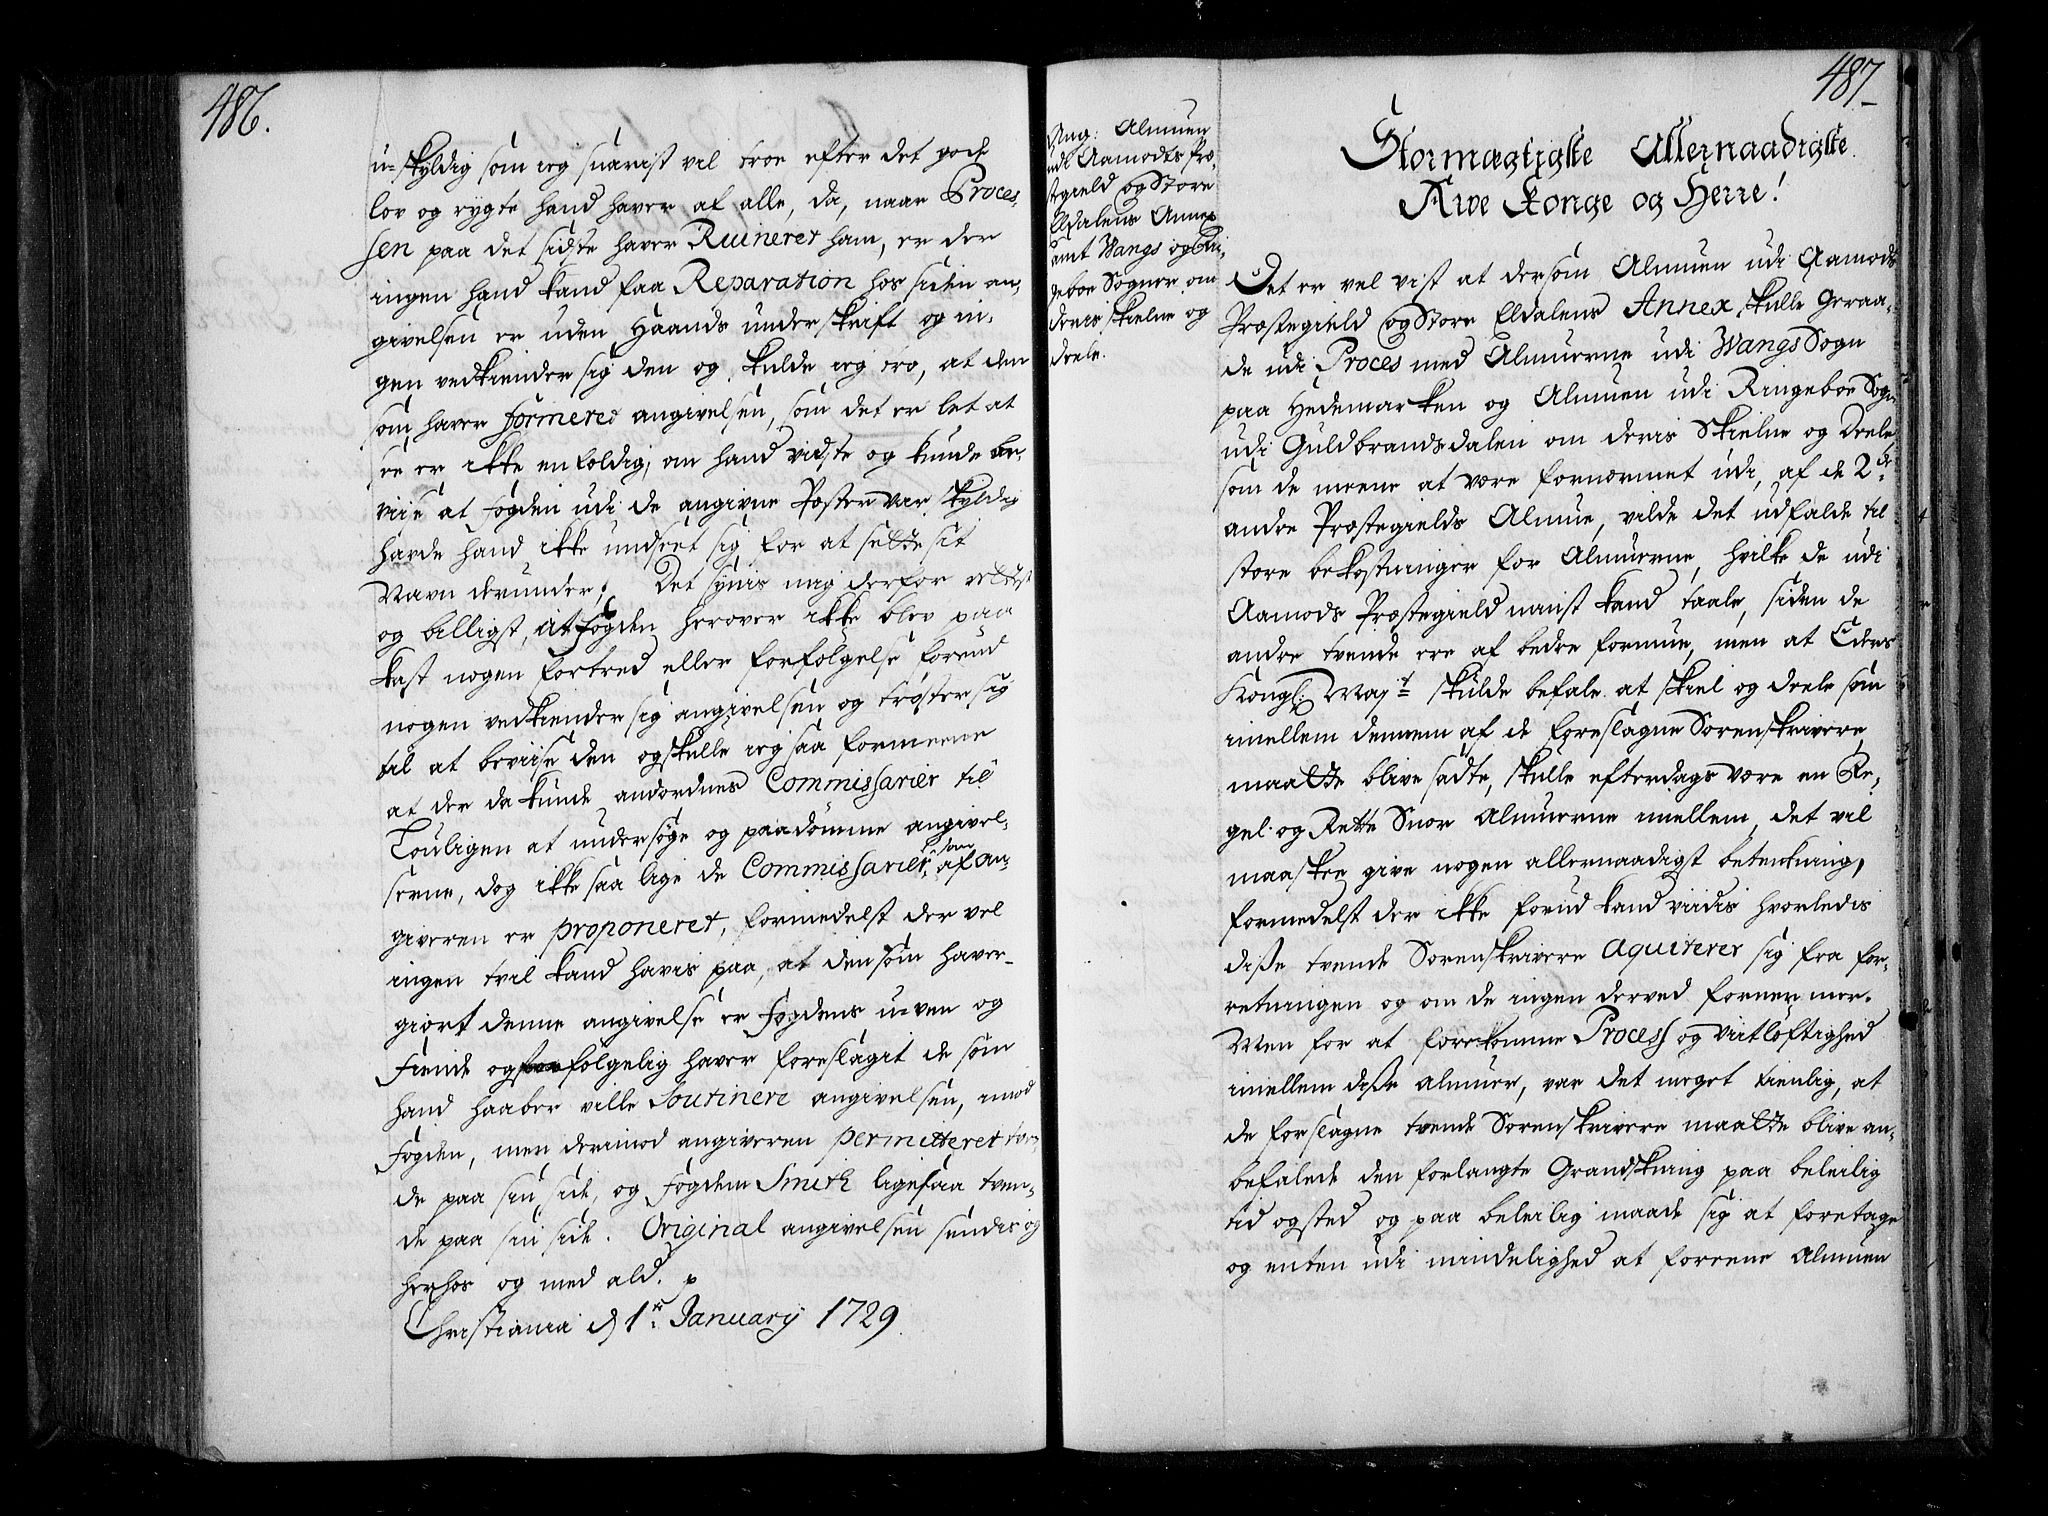 486.
u-skyldig som ieg snarist vil troe efter det gode
lov og rygte hand haver af alle, da, naar Proces,
sen paa det sidste haver Ruineret ham, er der
ingen hand kand faa Reparation hos siden an,
givelsen er uden Haands underskrift og in,
gen vedkiender sig den og skulde ieg tro, at den
som haver formeret angivelsen, som det er let at
see er ikke enfoldig, om hand vidste og kunde be,
viise at Fogden udi de angivne Poster var skyldig
hafde hand ikke undseet sig for at sette sit
Navn derunder; Det synis mig derfor rettest
og billigst, at Fogden herover ikke blev paa
kast nogen fortred eller forfølgelse førend
nogen vedkiender sig angivelsen og trøster sig
til at beviise den og skulle ieg saa formeene
at der da kunde andordnes Commissarier til
Louligen at undersøge og paadømme angivel,
serne, dog ikke saa lige de Commissarier, som af an,
giveren er proponeret, formedelst der vel
ingen tvil kand havis paa, at den som haver
giort denne angivelse er Fogdens u-ven og
Fiende og følgelig haver foreslagit de som
hand haaber ville Soutinere angivelsen, imod
Fogden, men derimod angiveren permitteret tven,
de paa sin side, og Fogden Smith ligesaa tven,
de paa sin side. Original angivelsen sendis og
herhos og med ald. p
Christiania d 1te January 1729.
487
Ang: Almuen
udi Aamodts Præ,
stegield og Store
Eldalens Annex
samt Wangs og Rin,
geboe Sogner om
deris skielne og
deele.
Stormægtigste Allernaadigste
Arve Konge og Herre!
Det er vel vist at dersom Almuen udi Aamods
Præstegield og Store Eldalens Annex, skulle Geraa,
de udi Proces med Almuerne udi Wangs Sogn
paa Hedemarken og Almuen udi Ringeboe Sogn
udi Guldbrandsdalen om deris Skielne og Deele
som de meene at være fornærmet udi, af de 2de
andre Præstegields Almue, vilde det udfalde til
store bekostninger for Almuerne, hvilke de udi
Aamods Præstegield mindst kand taale, siden de
andre tvende ere af bedre formue, men at Eders
Kongl: Mayt skulde befale at skiel og deele som
imellem dennem af de foreslagne Sorenskrivere
maatte blive sadte, skulle efterdags være en Re,
gel og Rette Snor Almuerne imellem, det vil
maaskee give nogen allernaadigst betenkning,
formedelst der ikke forud kand viidis hvorledis
disse tvende Sorenskrivere aquiterer sig fra for,
retningen og om de ingen derved fornermer.
Men for at forekomme Process og viitløftighed
imellem disse almuer, var det meget tienlig, at
de forslagne tvende Sorenskrivere maatte blive an,
befalede den forlangte Grandskning paa beleilig
tid og sted og paa beleilig maade sig at foretage
og enten udi mindelighed at foreene Almuen